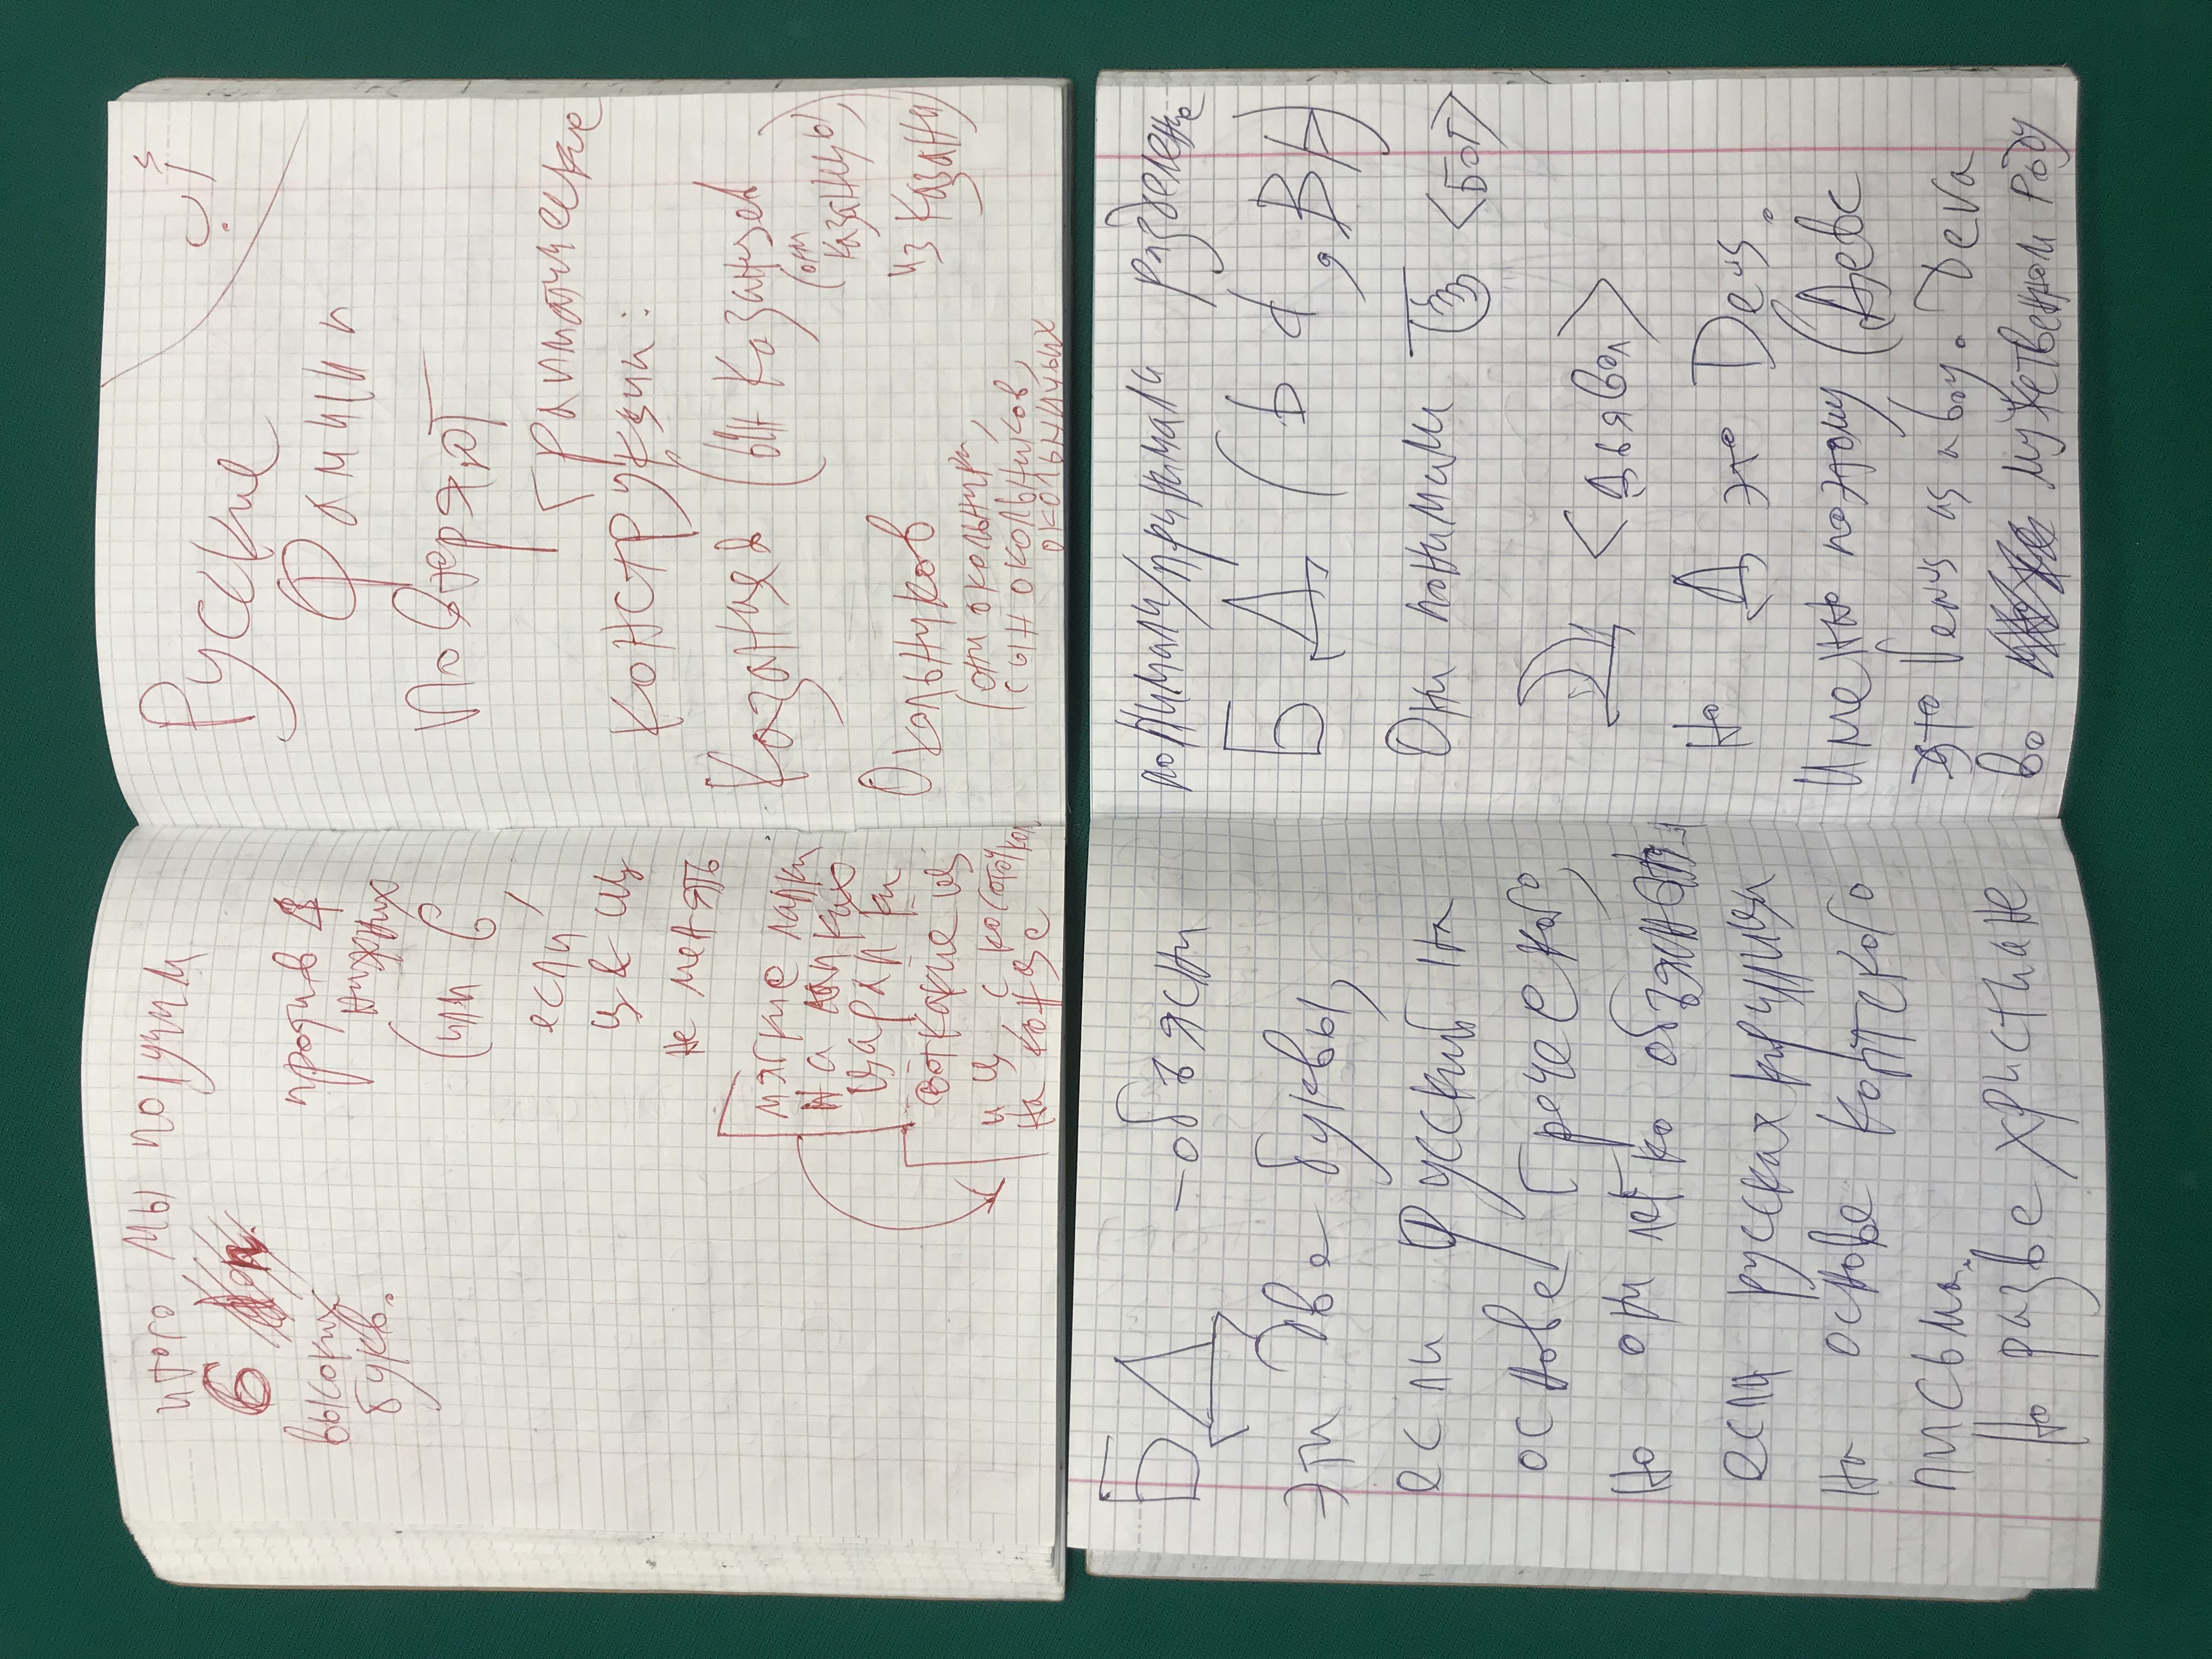 итого мы получим
6
высоких
букв.
против 4
нижних
(или 6,
если
ц & щ
не менять
мягкие лапки
на лапках
царапки
вот какие щ
и ц, с коготочком
на конце
أب
Русские
Фамилии
повторяют
грамматические
конструкции:
Казанцев (сын Казанцев
(они
казанцы,
из Казани)
Окольников
(они окольники,
сын окольников,
окольничьих
БД - объясни
эти две буквы,
если русский на
основе греческого,
но они легко объяснены
если русская кириллица
на основе коптского
письма.
Но разве христиане
понимали/принимали разделение
Б Д (b d, BH)
Они понимали Б <Бог>
Д <Дьявол>
Но Д это Deus.
Именно поэтому (Девс
это Venus as a boy. Deva
во мужественном роду